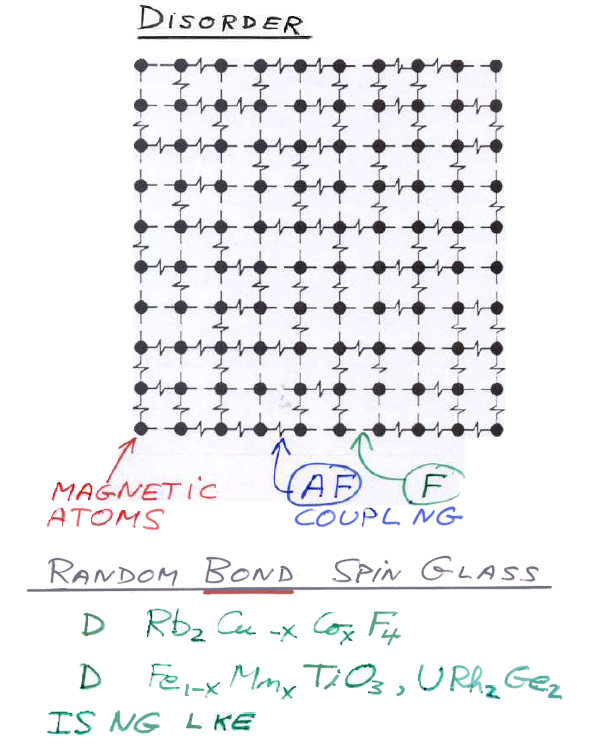 DISORDER
MAGNETIC AF F
ATOMS COUPL NG
RANDOM BOND SPIN GLASS
D Rb2 Cu -x Cox F4
D Fe1-x Mnx TiO3, URh2Ge2
IS NG L KE